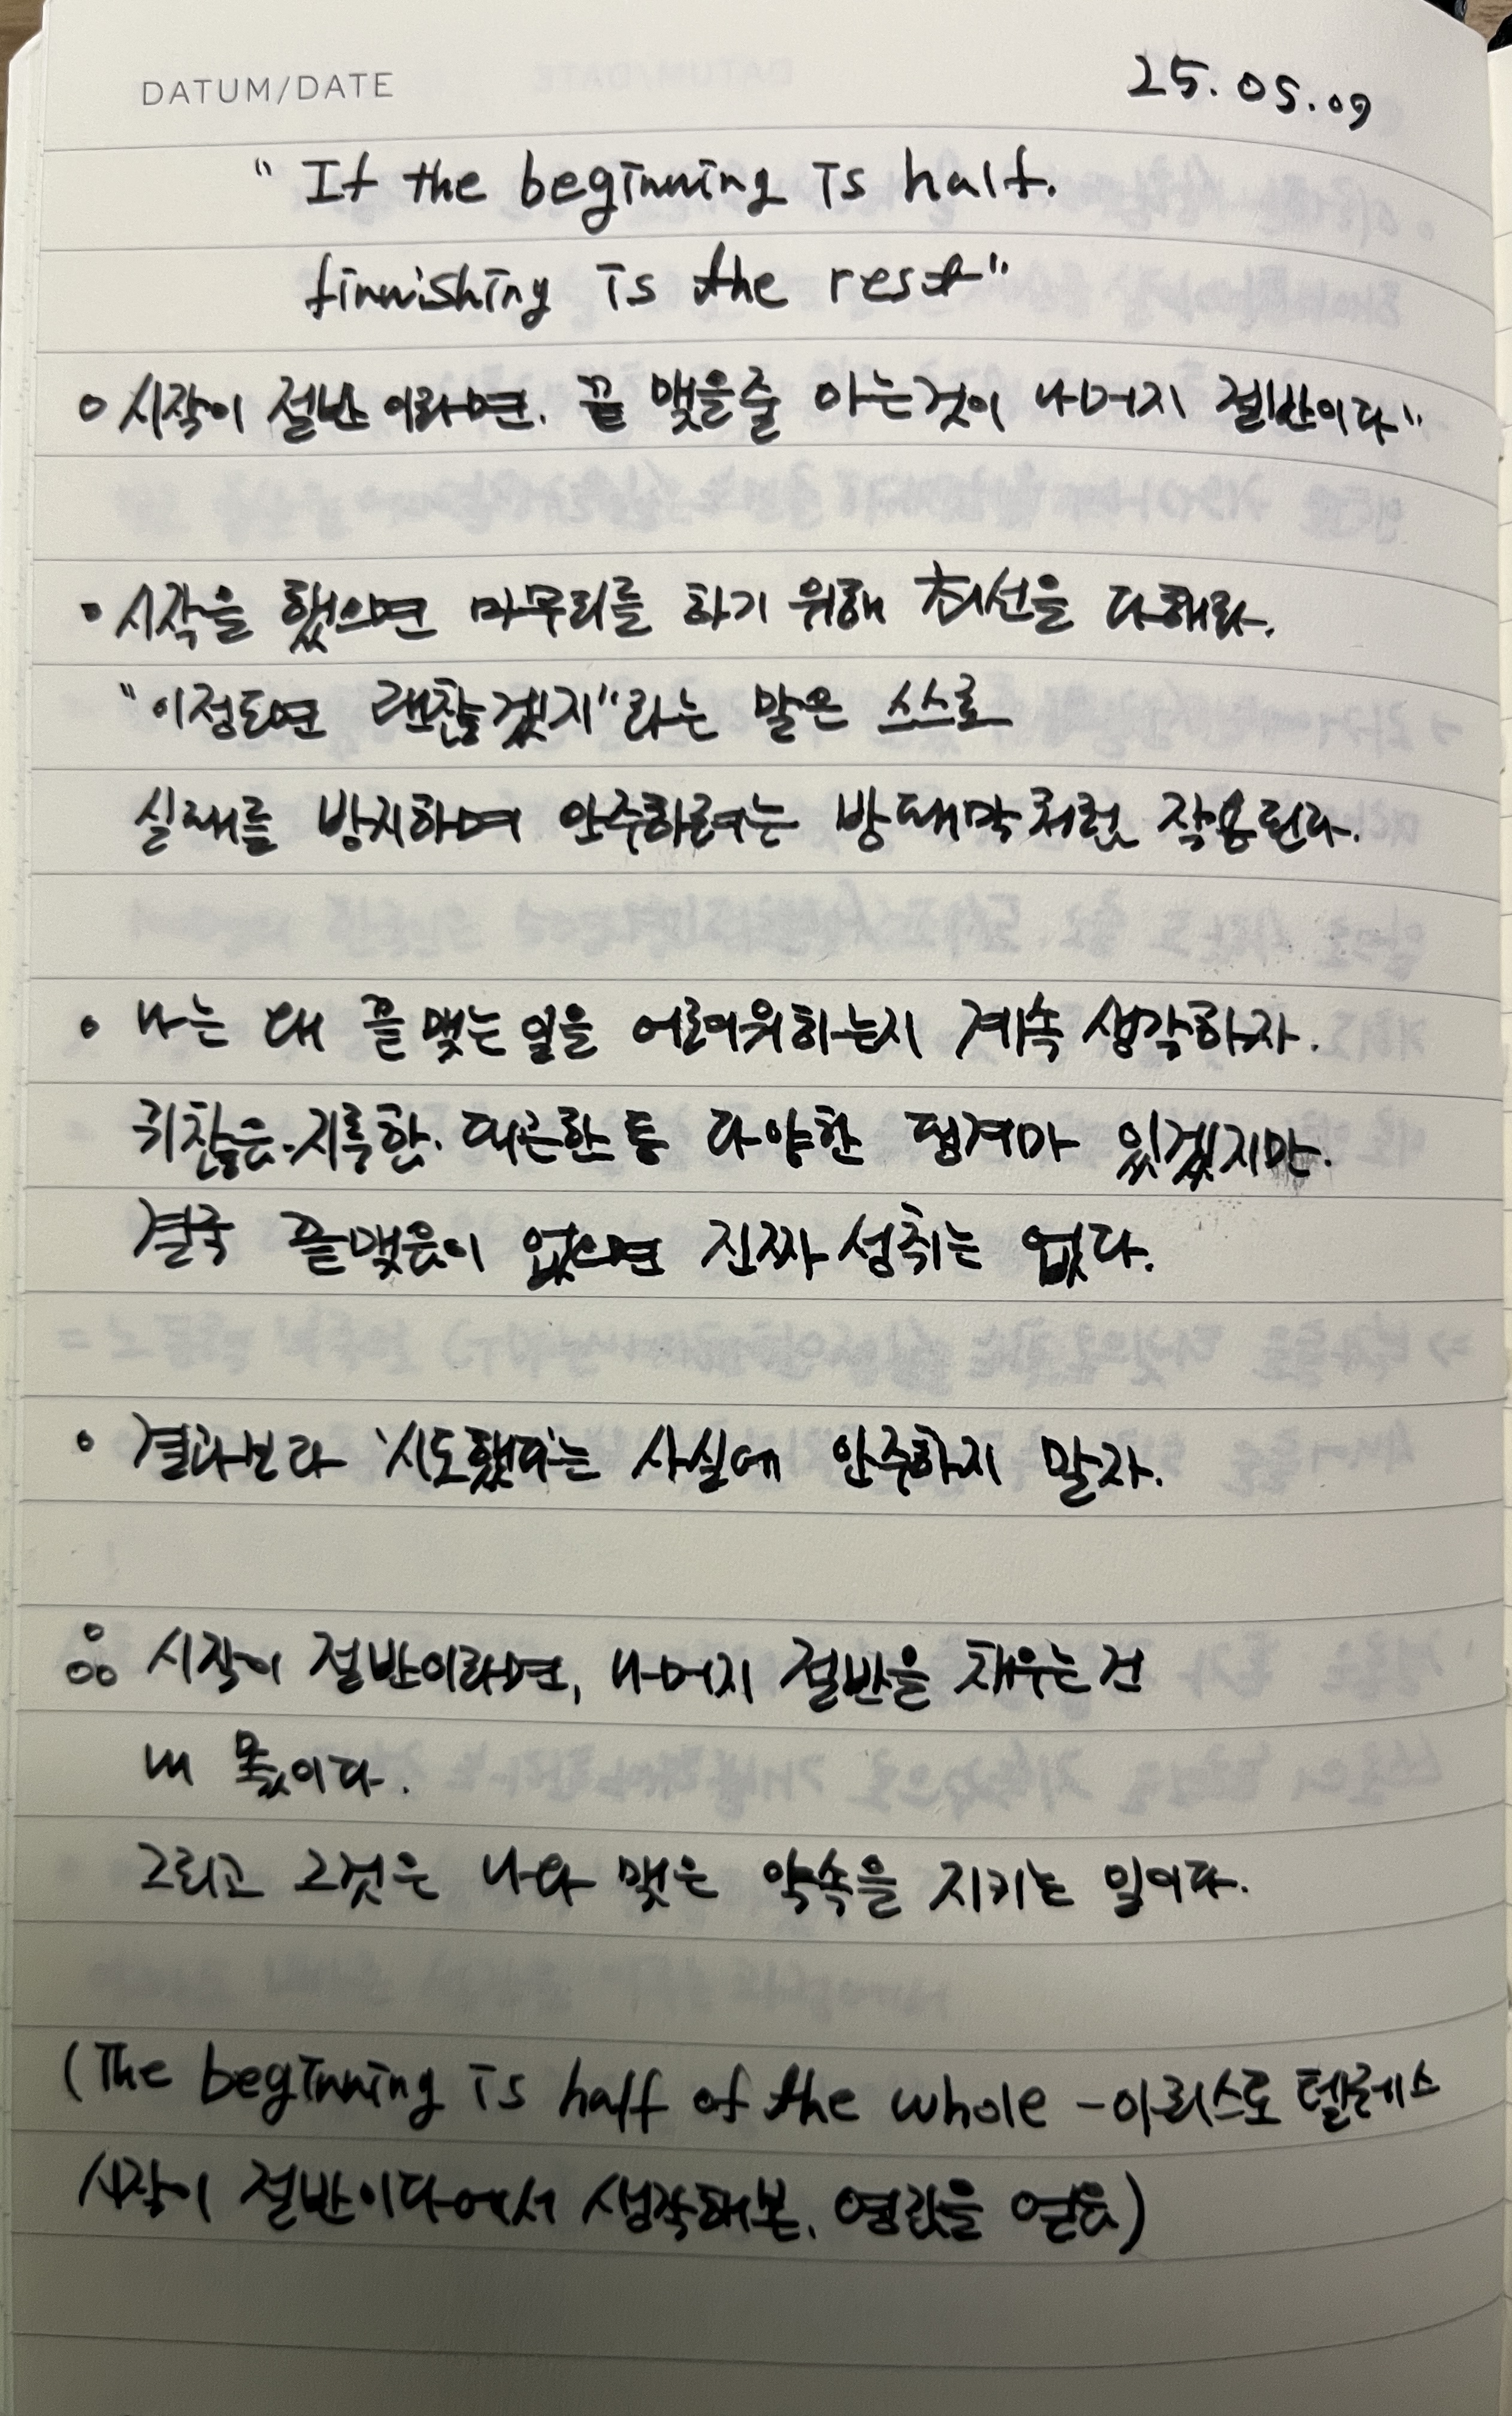 DATUM/DATE
25.05.09
" If the beginning is half.
finnishing is the rest"
○ 시작이 절반 이라면. 끝 맺을줄 아는것이 나머지 절반이다"
• 시작을 했으면 마무리를 하기 위해 최선을 다해라.
"이정도면 괜찮겠지"라는 말은 스스로
실패를 방지하며 안주하려는 방패막처럼 작용된다.
• 나는 왜 끝 맺는 일을 어려워하는지 계속 생각하자.
귀찮음. 지루함. 피곤함 등 다양한 핑계가 있겠지만.
결국 끝맺음이 없으면 진짜 성취는 없다.
• 결과보다 '시도했다'는 사실에 안주하지 말자.
ஃ 시작이 절반이라면, 나머지 절반을 채우는건
내 몫이다.
그리고 그것은 나와 맺은 약속을 지키는 일이다.
(The beginning is half of the whole - 아리스토 텔레스
시작이 절반이다에서 생각해본, 영감을 얻음)